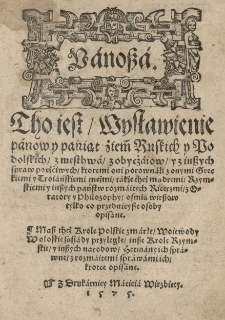 Panoßá.
Tho iest / Wysławienie
pánow y pániąt źiem Ruskich y Po
dolskich / z męstwá / z obyczáiow / y z inßych
spraw poććiwych / ktoremi oni porownáli z onymi Grec
kiemi y Troiáńskiemi mężmi / tákieżteż mądremi / Rzym
skiemi y inßych pánstw rozmáitych Rycerzmi / z O-
ratory y Philozophy / ośmią wierßow
tylko co przednieyße osoby
opisáne.
¶ Máß theż Krole Polskie zmárłe / Woiewody
Wołoskie sąsiády przyległe / inße Krole Rzym-
skie / y inßych narodow / Hetmány ich sprá-
wne / z rozmáitemi spráwámi ich /
krotce opisáne.
¶ Z Drukárniey Máćieiá Wirzbięty.
1575.